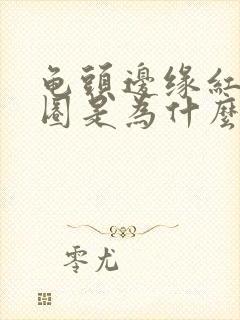 龟頭邊缘紅
圈是為什麼
零尤